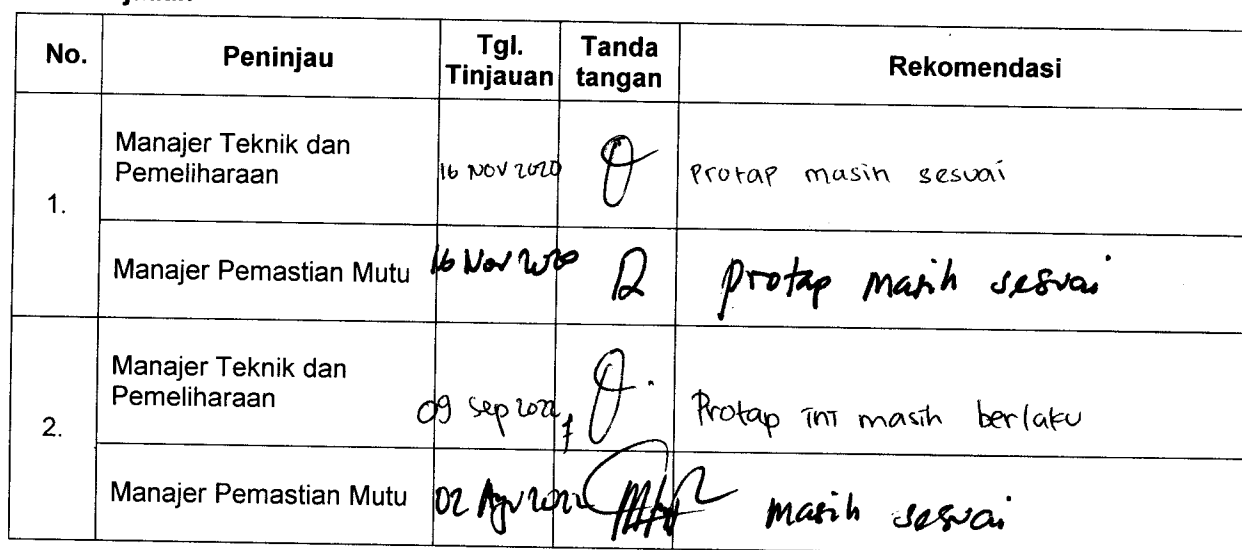 No. Peninjau Tgl. Tinjauan Tanda tangan Rekomendasi
1.
Manajer Teknik dan Pemeliharaan 16 NOV 2020 protap masih sesuai
Manajer Pemastian Mutu 16 Nov 2020 protap masih sesuai
2.
Manajer Teknik dan Pemeliharaan 09 Sep 2022 Protap ini masih berlaku
Manajer Pemastian Mutu 02 Agu 2022 masih sesuai